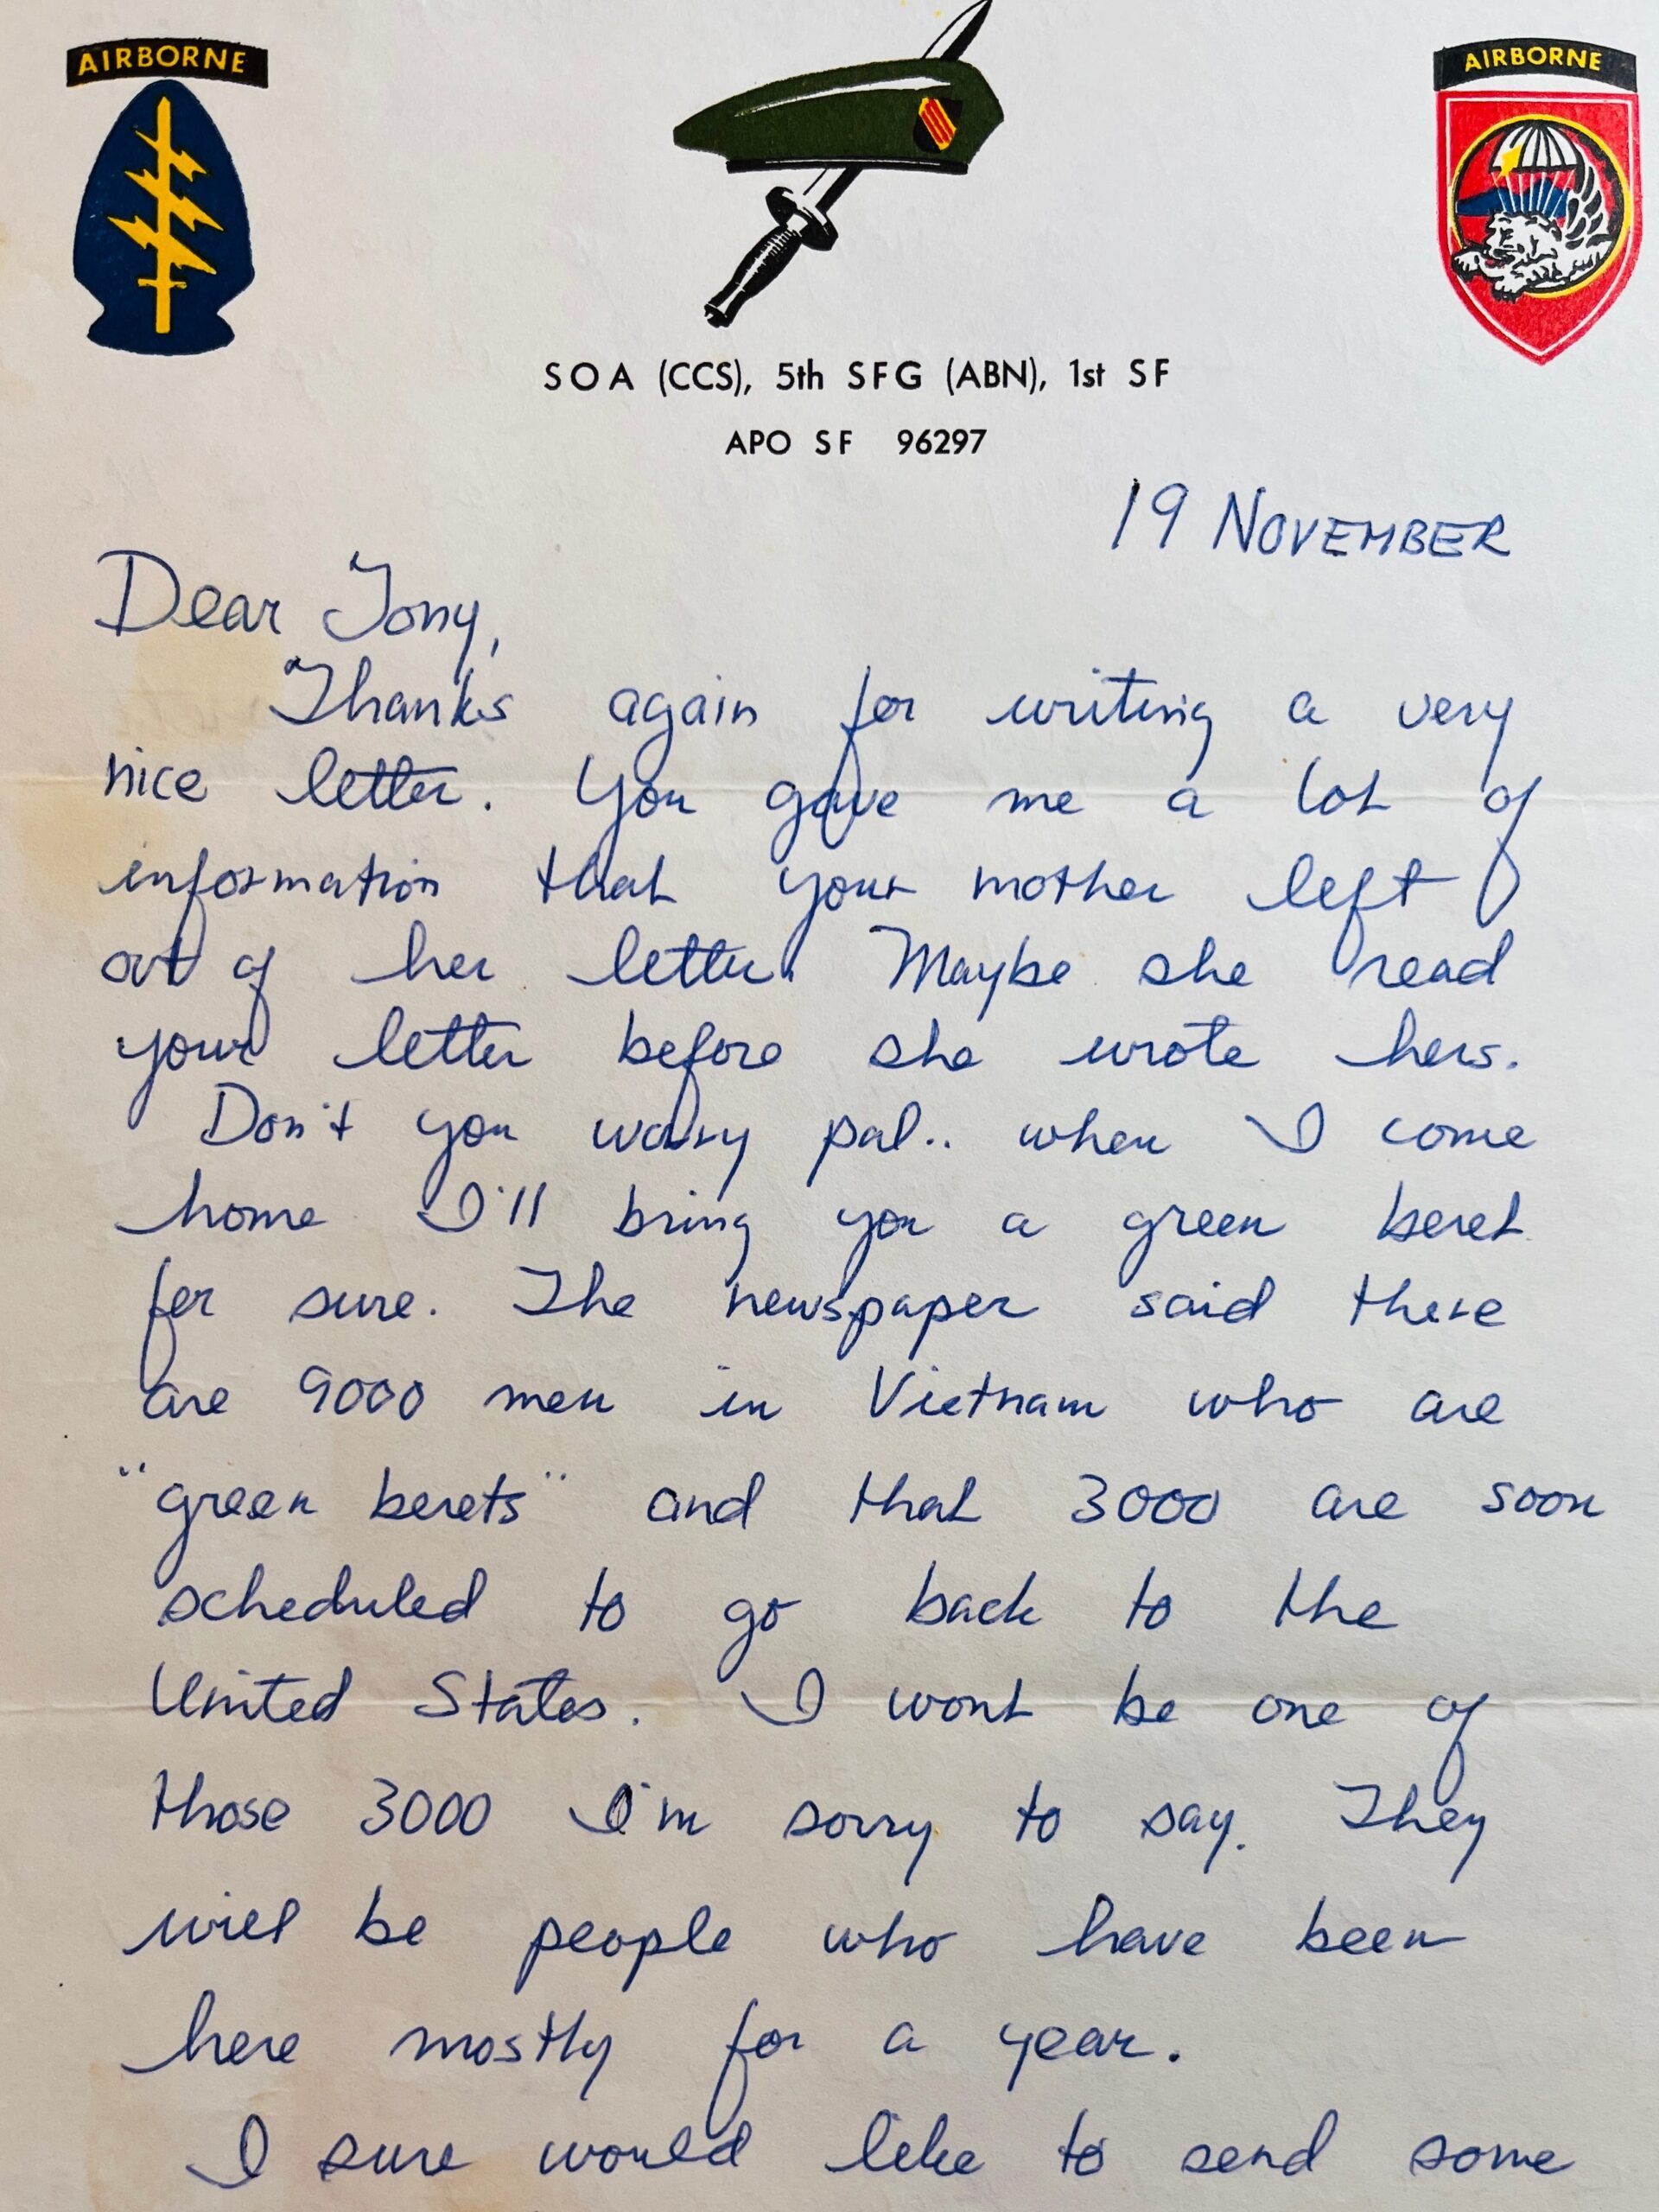 AIRBORNE
AIRBORNE
SOA (CCS), 5th SFG (ABN), 1st SF
APO SF 96297
19 NOVEMBER
Dear Tony,
Thanks again for writing a very
nice letter. You gave me a lot of
information that your mother left
out of her letter. Maybe she read
your letter before she wrote hers.
Don't you worry pal.. when I come
home I'll bring you a green beret
for sure. The newspaper said there
are 9000 men in Vietnam who are
"green berets" and that 3000 are soon
scheduled to go back to the
United States. I wont be one of
those 3000 I'm sorry to say. They
will be people who have been
here mostly for a year.
I sure would like to send some